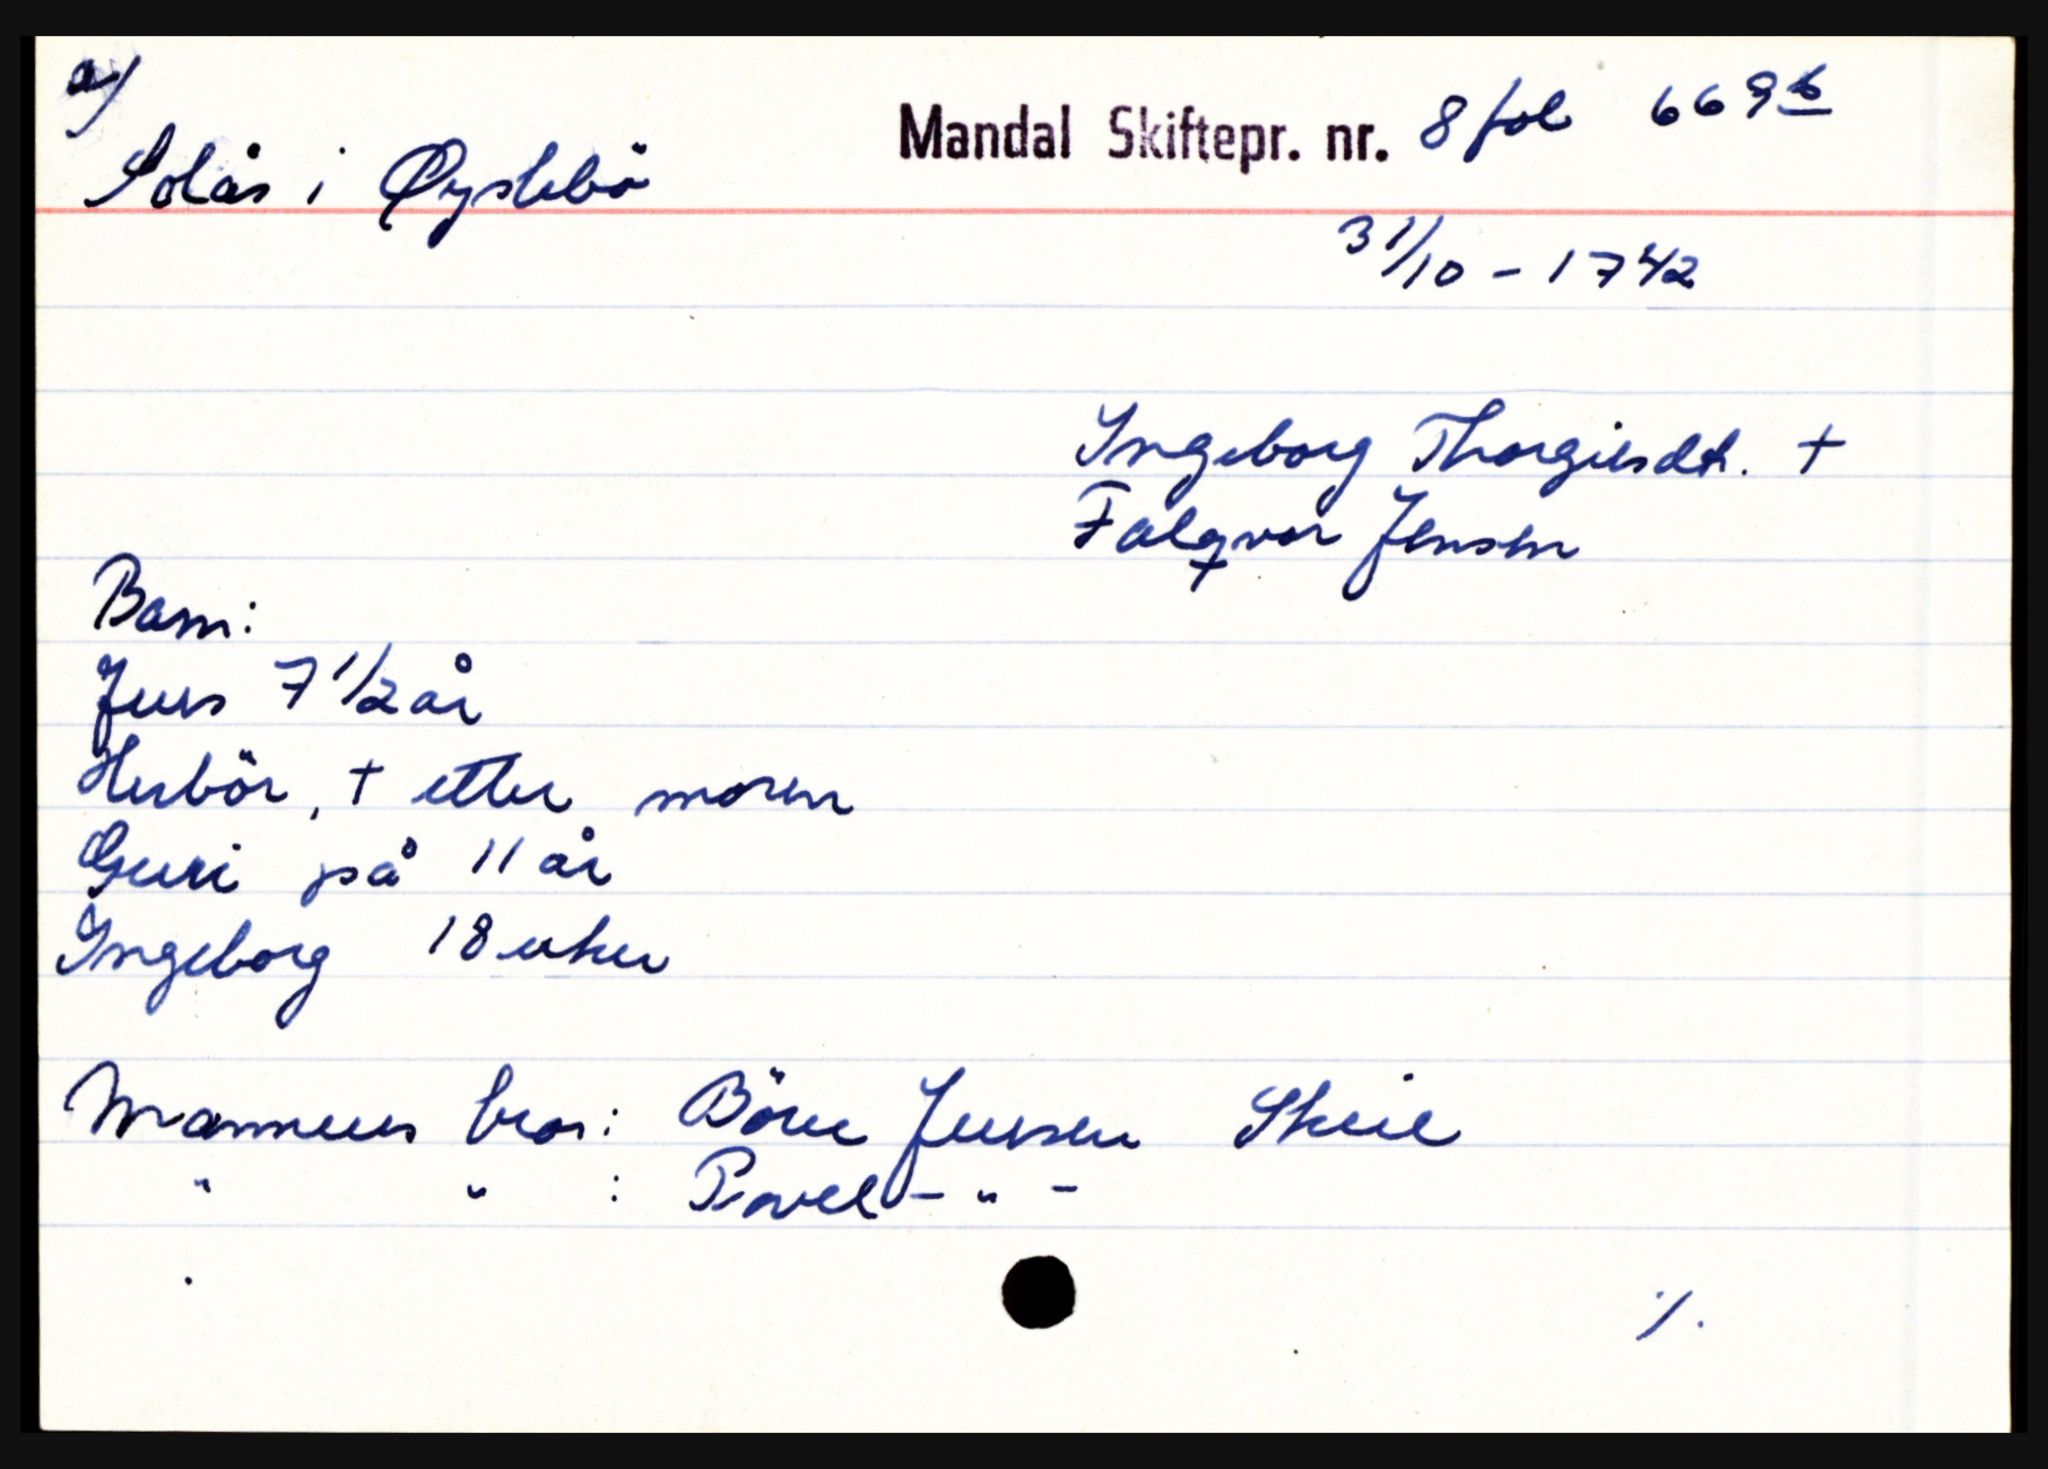 a/
Mandal Skiftepr. nr. 8 fol 669b
Solås i Øyslebö
31/10 - 1742
Ingeborg Thorgiersdt. +
Falqvor Jensen
Barn:
Jens 7 1/2 år
Herbör, + etter moren
Guri på 11 år
Ingeborg 18 uker
Mannens bror: Böre Jensen Skeie
" " : Povel - " -
·/.